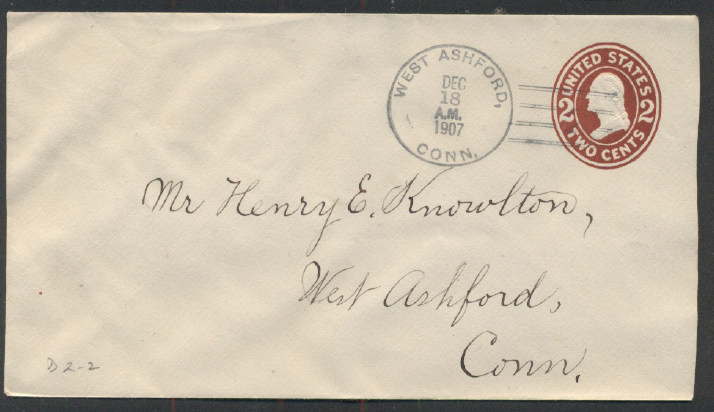 WEST ASHFORD,
DEC
18
A.M.
1907
CONN.
UNITED STATES
2 2
TWO CENTS
Mr Henry E. Knowlton,
West Ashford,
Conn.
D 2-2